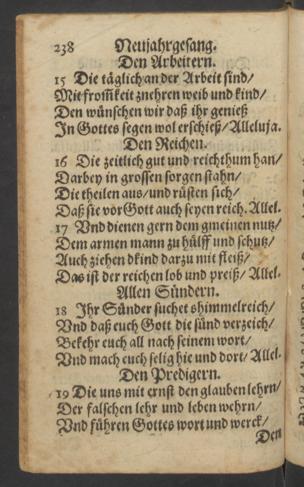 238 Neujahrgesang.
Den Arbeitern.
15 Die täglich an der Arbeit sind/
Mit from̃keit znehren weib und kind/
Den wünschen wir daß ihr genieß
In Gottes segen wol erschieß/ Alleluja.
Den Reichen.
16 Die zeitlich gut und reichthum han/
Darbey in grossen sorgen stahn/
Die theilen aus/ und rüsten sich/
Daß sie vor Gott auch seyen reich. Allel.
17 Vnd dienen gern dem gmeinen nutz/
Dem armen mann zu hülff und schutz/
Auch ziehen dkind darzu mit fleiß/
Das ist der reichen lob und preiß/ Allel.
Allen Sündern.
18 Ihr Sünder suchet shimmelreich/
Vnd daß euch Gott die sünd verzeich/
Bekehr euch all nach seinem wort/
Vnd mach euch selig hie und dort/ Allel.
Den Predigern.
19 Die uns mit ernst den glauben lehrn/
Der falschen lehr und leben wehrn/
Vnd führen Gottes wort und werck/
Den